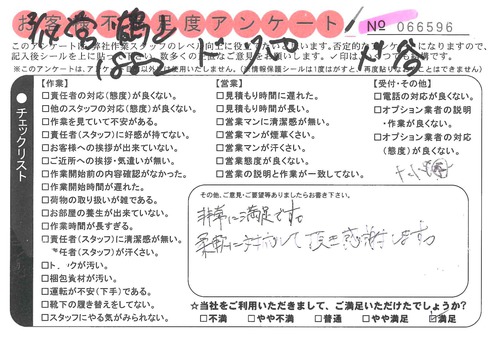 お客様不満足度アンケート
№ 066596
このアンケートは、弊社作業スタッフのレベル向上に役立たせたいと思います。否定的なアンケートになりますので、
記入後シールを上に貼って下さい。数多くのご意見をお願いします。✓印はいくつでも結構です。
【作業】
□責任者の対応(態度)が良くない。
□他のスタッフの対応(態度)が良くない。
□作業を見ていて不安がある。
□責任者(スタッフ)に好感が持てない。
□お客様への挨拶が出来ていない。
□ご近所への挨拶・気遣いが無い。
□作業開始前の内容確認がなかった。
□作業開始時間が遅れた。
□荷物の取り扱いが雑である。
□お部屋の養生が出来ていない。
□作業時間が長すぎる。
□責任者(スタッフ)に清潔感が無い。
責任者(スタッフ)が汗くさい。
□トラックが汚い。
□梱包資材が汚い。
□運転が不安(下手)である。
□靴下の履き替えをしてない。
□スタッフにやる気がみられない。
チェックリスト
【営業】
□見積もり時間に遅れた。
□見積もり時間が長い。
□営業マンに清潔感が無い。
□営業マンが煙草くさい。
□営業マンが汗くさい。
□営業態度が良くない。
□営業の説明と作業が一致してない。
【受付・その他】
□電話の対応が良くない。
□オプション業者の説明
・作業が良くない。
□オプション業者の対応
(態度)が良くない。
その他、ご意見・ご要望等ありましたらお書き下さい。
非常に満足です。
柔軟に対応して頂き感謝します。
☆当社をご利用いただきまして、ご満足いただけたでしょうか?
□不満 □やや不満 □普通 □やや満足 ☑満足